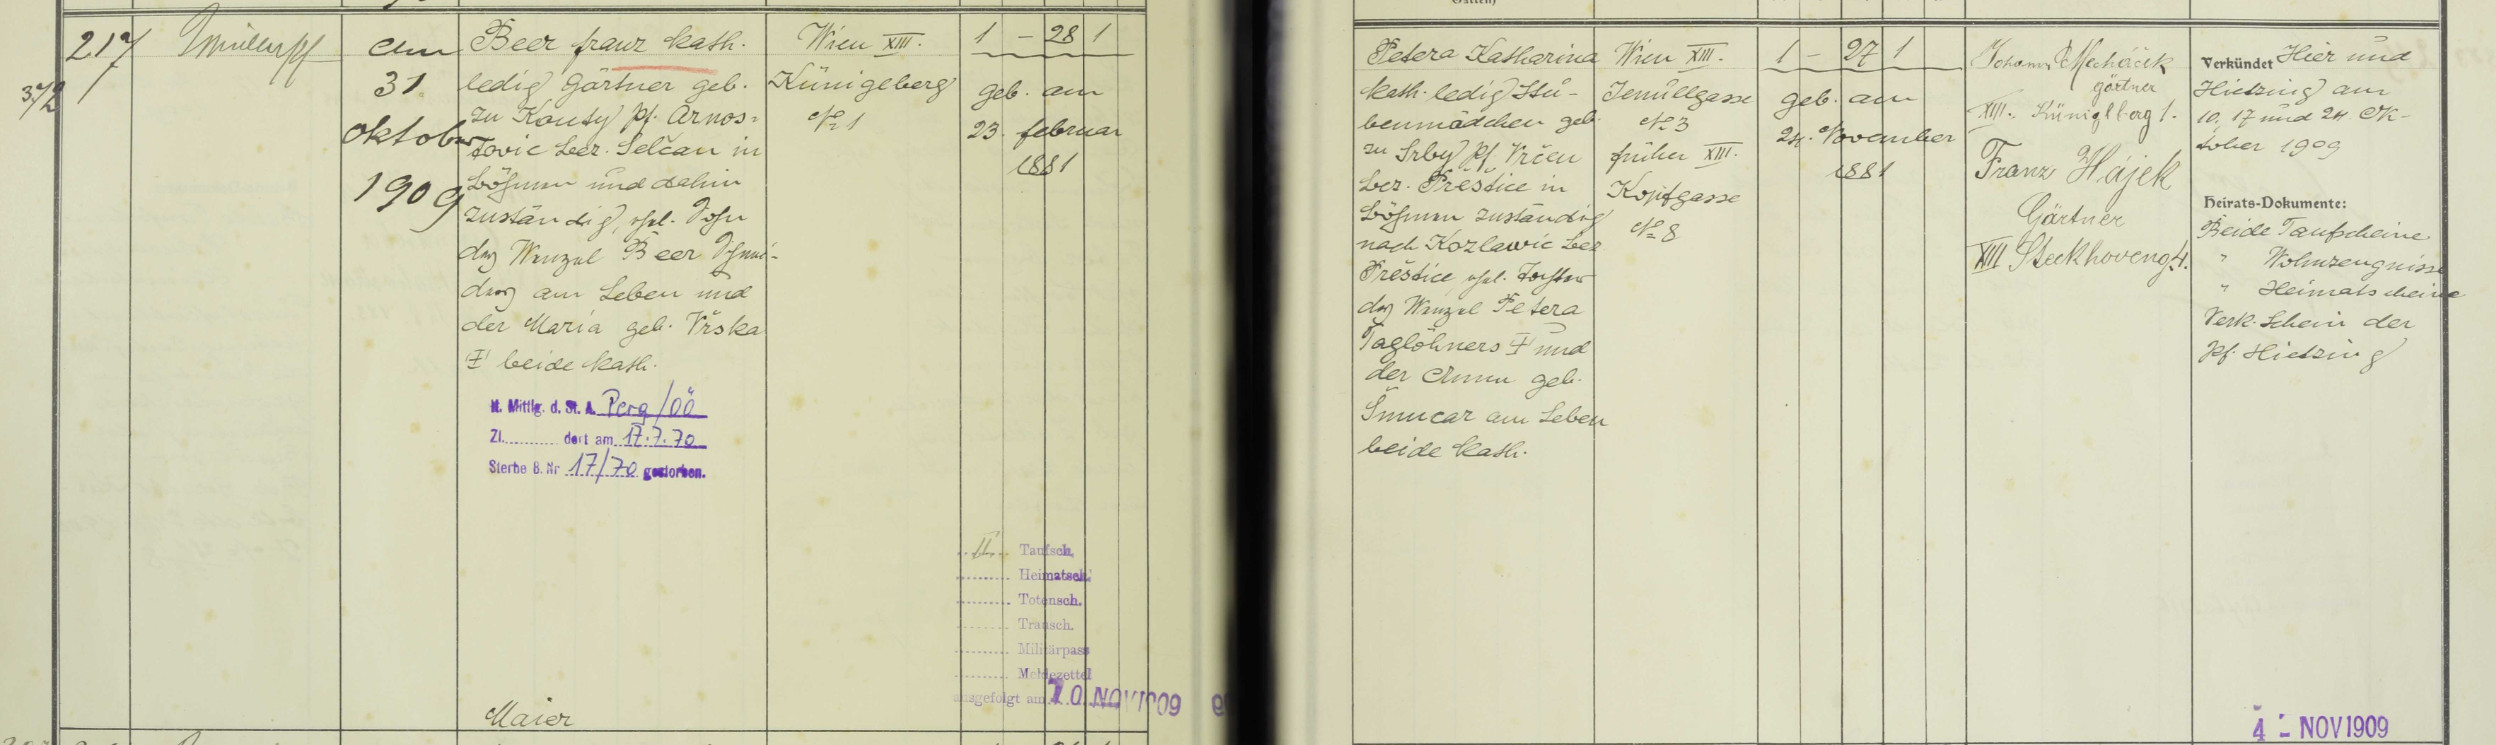 217
372
Am
31
Oktober
1909
Beer Franz kath.
ledig Gärtner geb.
zu Kouty Pf. Arnos=
tovic Bez. Selčan in
Böhmen und dahin
zuständig, ehel. Sohn
des Wenzel Beer Schnei-
ders am Leben und
der Maria geb. Vrška
† beide kath.
lt. Mittlg. d. St. A. Perg/OÖ
Zl. dort am 17.7.70
Sterbe B. Nr 17/70 gestorben.
Maier
Wien XIII.
Künigeberg
No 1
1 - 28 1
geb. am
23. Februar
1881
II Taufsch.
Heimatsch.
Totensch.
Trausch.
Militärpass
Meldezettel
ausgefolgt am 10. NOV 1909
Petera Katharina
kath. ledig Stu-
benmädchen geb.
zu Srby Pf. Vrčen
Bez. Přestice in
Böhmen zuständig
nach Kozlawic Bez
Přestice ehel. Tochter
des Wenzel Petera
Taglöhners † und
der Anna geb.
Šmucar am Leben
beide kath.
Wien XIII.
Jenullgasse
No 3
früher XIII.
Kopfgasse
No 8
1 - 27 1
geb. am
24. November
1881
Johann
gärtner
XIII. Küniglberg 1.
Franz Hájek
Gärtner
XIII Steckhoveng 4.
Verkündet Hier und
Hietzing am
10. 17 und 24 Ok-
tober 1909
Heirats-Dokumente:
Beide Taufscheine
" Wohnzeugnisse
" Heimatscheine
Verk. Schein der
Pf. Hietzing
4 - NOV 1909